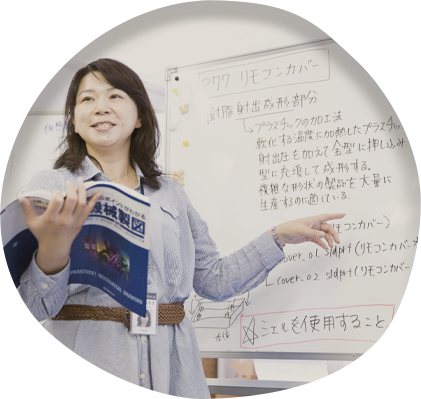 077 リモコンカバー
樹脂射出成形部分
プラスチックの加工法
軟化する温度に加熱したプラスチック
射出圧を加えて金型に押し込み
型に充填して成形する。
複雑な形状の製品を大量に
生産するのに適している
リモコンカバー)
cover_01.sldprt(リモコンカバー
cover_02.sldprt(リモコンカバー
シェルを使用すること
機械製図